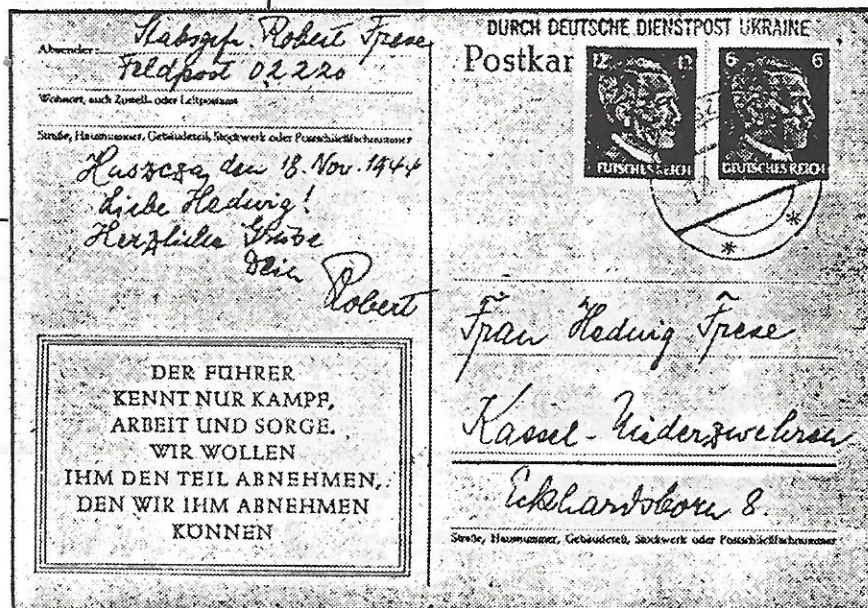 Absender: Stabsgefr. Robert Frese
Feldpost 02220
Wohnort, auch Zustell- oder Leitpostamt
Straße, Hausnummer, Gebäudeteil, Stockwerk oder Postschließfachnummer
Huszcza, den 18. Nov. 1944
Liebe Hedwig!
Herzliche Grüße
Dein
Robert
DER FÜHRER
KENNT NUR KAMPF,
ARBEIT UND SORGE.
WIR WOLLEN
IHM DEN TEIL ABNEHMEN,
DEN WIR IHM ABNEHMEN
KÖNNEN
DURCH DEUTSCHE DIENSTPOST UKRAINE
Postkar
12 12
6 6
DEUTSCHES REICH
Frau Hedwig Frese
Kassel-Niederzwehren
Eckhardsborn 8.
Straße, Hausnummer, Gebäudeteil, Stockwerk oder Postschließfachnummer